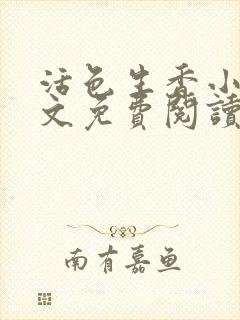 活色生香小
文免費閱讀
南有嘉鱼